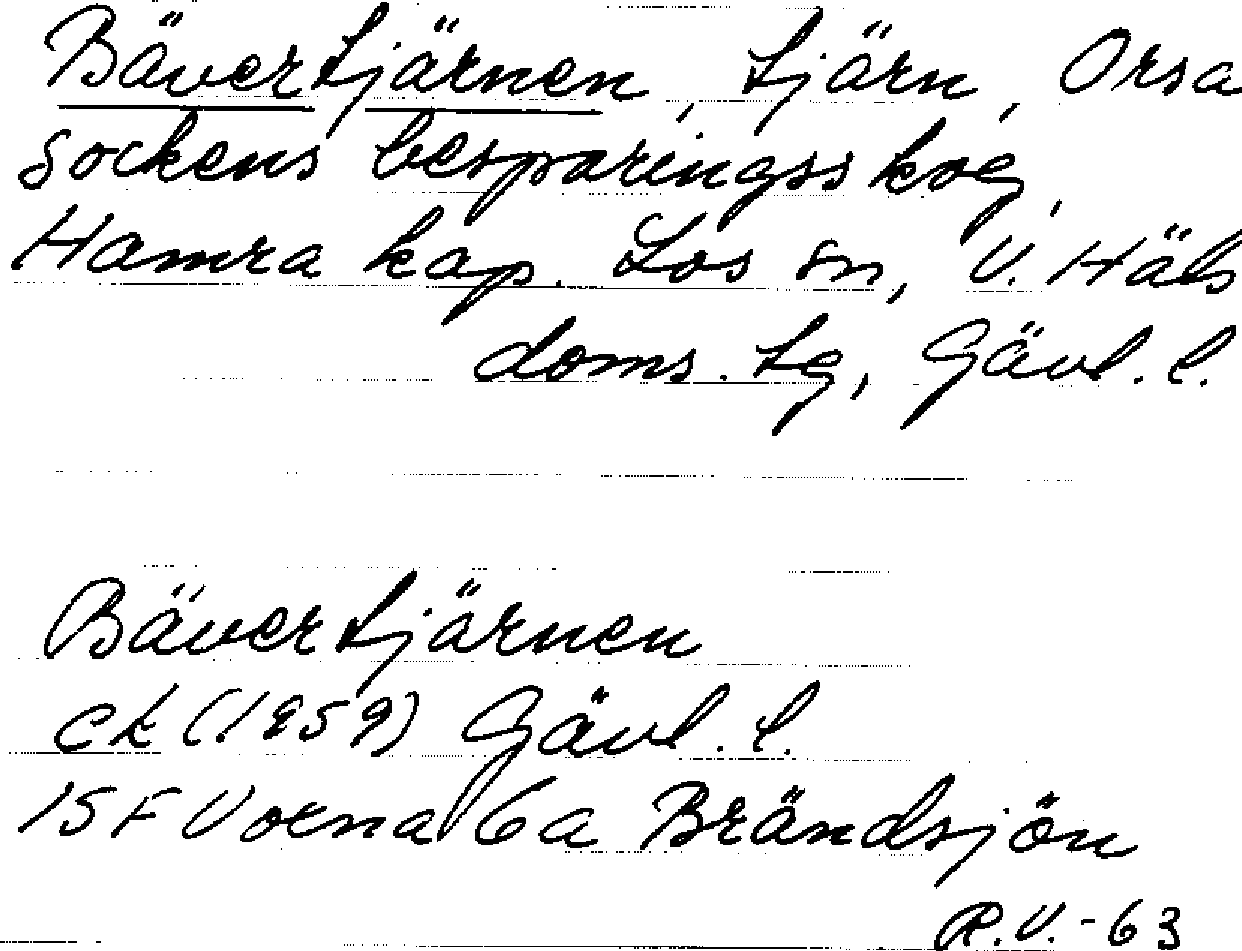 Bävertjärnen, tjärn, Orsa
sockens besparingsskog,
Hamra kap. Los sn, V. Häls
doms. tg, Gävl. l.
Bävertjärnen
ek (1959) Gävl. l.
15F Voxna 6a Brändsjön
R.V.-63